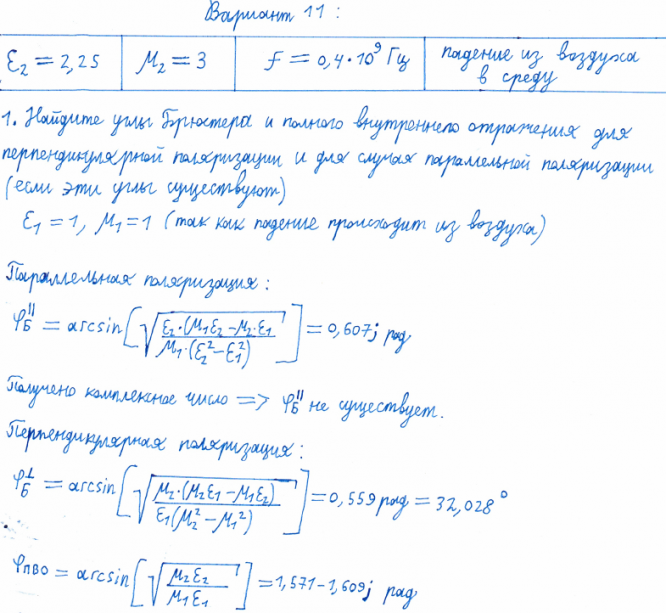 Вариант 11:
ε₂ = 2,25 | μ₂ = 3 | f = 0,4·10⁹ Гц | падение из воздуха в среду
1. Найдите углы Брюстера и полного внутреннего отражения для
перпендикулярной поляризации и для случая параллельной поляризации
(если эти углы существуют)
ε₁ = 1, μ₁ = 1 (так как падение происходит из воздуха)
Параллельная поляризация:
φ_Б^|| = arcsin[√(ε₂·(μ₁ε₂ − μ₂·ε₁) / μ₁·(ε₂² − ε₁²))] = 0,607j рад
Получено комплексное число => φ_Б^|| не существует.
Перпендикулярная поляризация:
φ_Б^⊥ = arcsin[√(μ₂·(μ₂ε₁ − μ₁ε₂) / ε₁(μ₂² − μ₁²))] = 0,559 рад = 32,028°
φ_ПВО = arcsin[√(μ₂ε₂ / μ₁ε₁)] = 1,571 − 1,609j рад